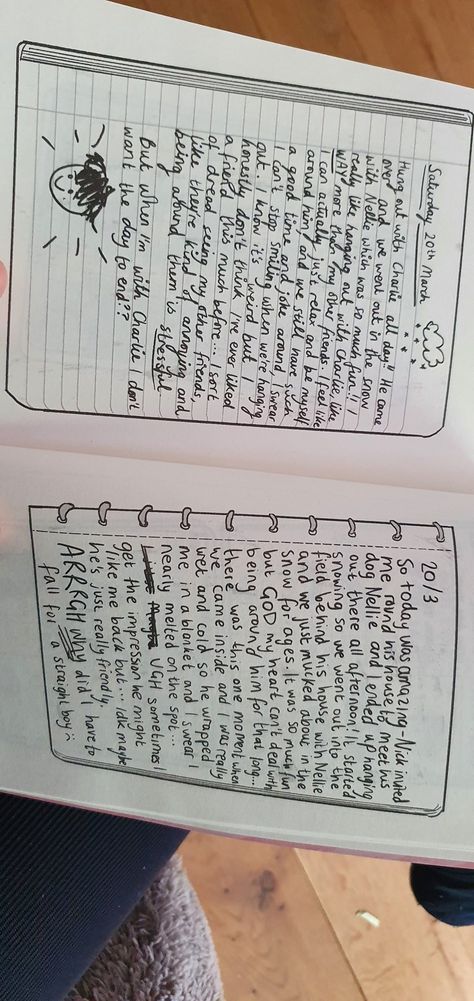 Saturday 20th March
Hung out with Charlie all day!! He came
over and we went out in the snow
with Nellie which was so much fun!! I
really like hanging out with Charlie, like
WAY more than my other friends. I feel like
I can actually just relax and be myself
around him, and we still have such
a good time and joke around, I swear
I can't stop smiling when we're hanging
out. I know it's weird but I
honestly don't think I've ever liked
a friend this much before... I sort
of dread seeing my other friends,
like they're kind of annoying and
being around them is stressful
But when I'm with Charlie I don't
want the day to end??
20/3
So today was amazing - Nick invited
me round his house to meet his
dog Nellie and I ended up hanging
out there all afternoon! It started
snowing so we went out into the
field behind his house with Nellie
and we just mucked about in the
snow for ages. It was so much fun
but GOD my heart can't deal with
being around him for that long...
there was this one moment when
we came inside and I was really
wet and cold so he wrapped
me in a blanket and I swear I
nearly melted on the spot...
UGH sometimes I
get the impression he might
like me back but... idk maybe
he's just really friendly.
ARRRGH WHY did I have to
fall for a straight boy :(